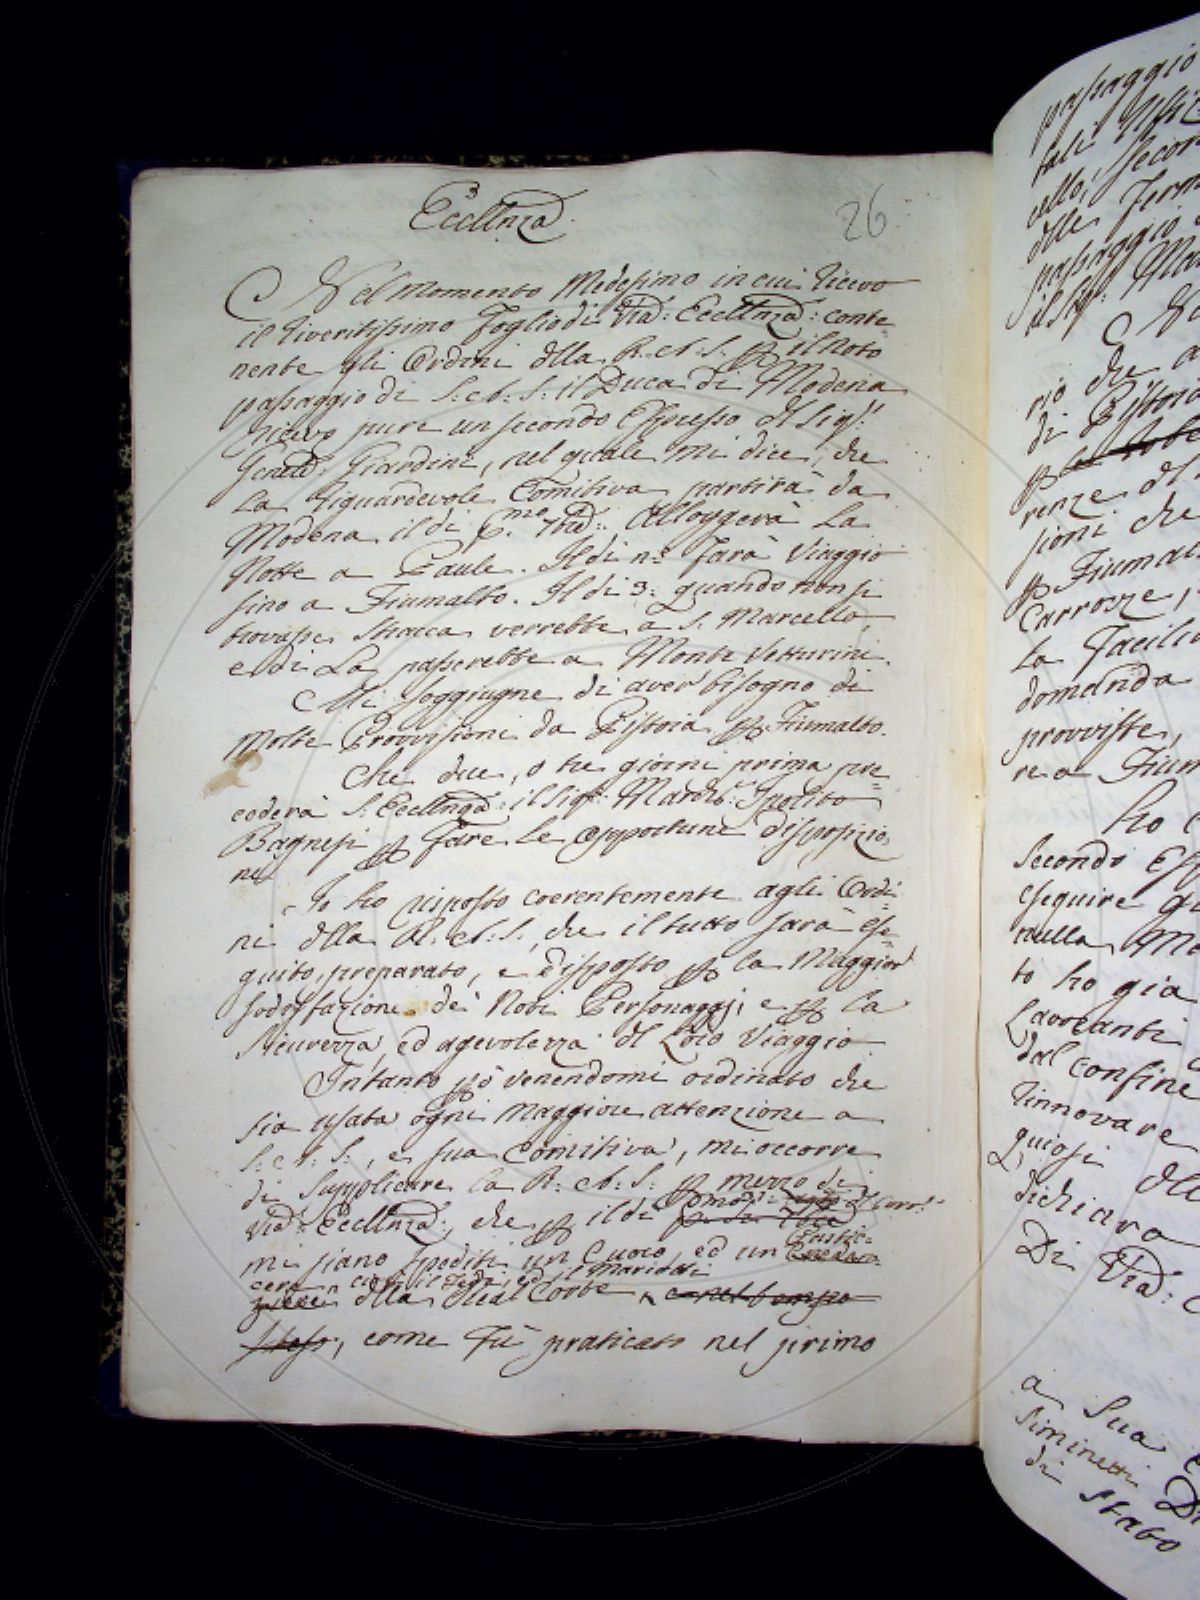 Eccllnza
26
Nel momento medesimo in cui ricevo
il riveritissimo foglio di Vrã: Eccllnza: conte
nente gli Ordini dlla R. A. S. p il noto
passaggio di S. A. S. il Duca di Modena
ricevo pure un secondo Espresso dl Sigr:
Genrle: Giardini, nel quale mi dice, che
la riguardevole Comitiva partirà da
Modena il dì Alloggerà la
Notte a Paule. Il dì farà viaggio
sino a Fiumalbo. Il dì 3: quando non si
trovasse stracca verrebbe a S. Marcello
e di là passerebbe a Monte Vetturini.
Mi soggiugne di aver bisogno di
molte Provvisioni da Pistoia p Fiumalbo.
Che due, o tre giorni prima pre=
cederà S. Eccllnza: il Sigr: Marche: Ipolito
Bagnesi p fare le opportune disposizio
ni
Io ho risposto coerentemente agli Ordi=
ni dlla R. A. S., che il tutto sarà ese=
guito, preparato, e disposto p la maggior
sodisfazione de' Nobi Personaggi, e p la
sicurezza, ed agevolezza dl Loro Viaggio
Intanto pò venendomi ordinato che
sia usata ogni maggiore attenzione a
S. A. S., e sua Comitiva, mi occorre
di supplicare la R. A. S. p mezzo di
Vrã: Eccllnza:, che p il dì pmo: dl Corr:
mi siano spediti un Cuoco, ed un Pastic=
cere cioè il ed il Maridati
dlla Real Corte e nel tempo
stesso, come fù praticato nel primo
passaggio
tali
secon
dlle Ferm
passaggio
il Sigr: Mar
rio che
di Pistoia
renze dl
sioni che
p Fiumalb
Carrozze,
la facili
domanda
provviste,
re a Fium
Ho
secondo Esp
eseguire
nulla
to ho già
Lavoranti
dal confine
rinnovare
quiosi dll
dichiaro
Di Vrã:
a Sua
Siminetti
di Stato